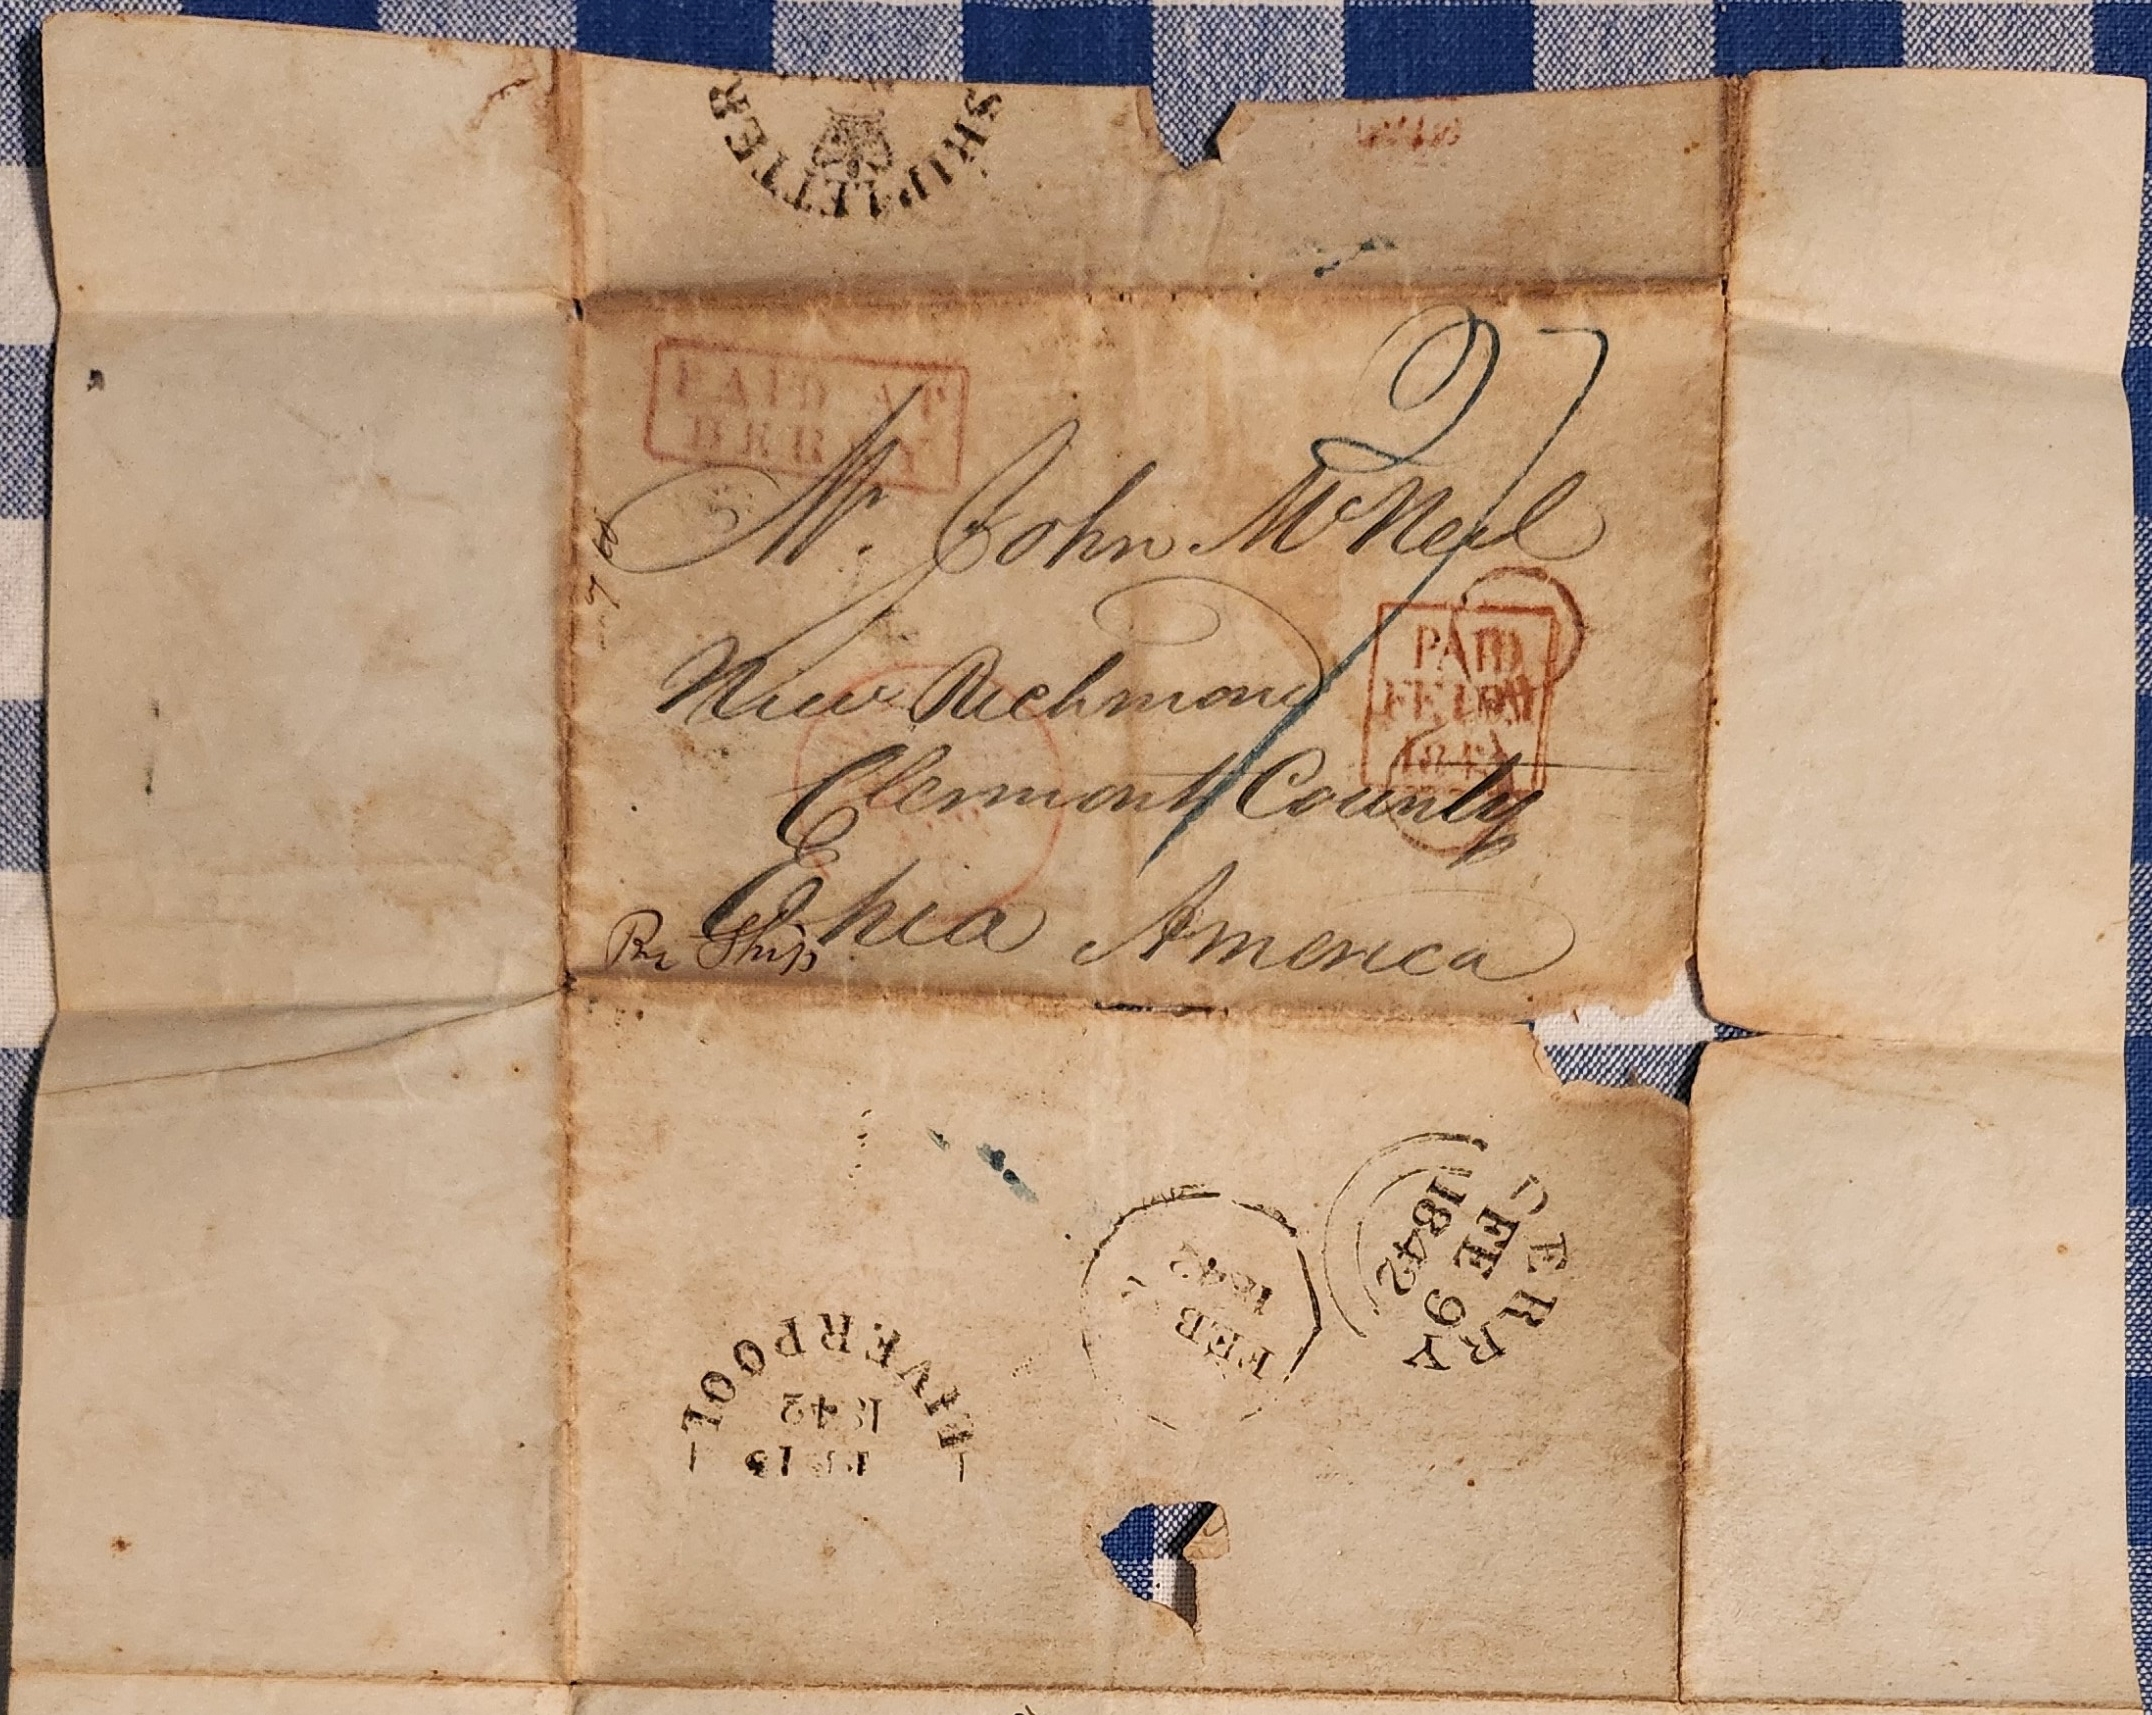 SHIP LETTER
PAID AT
DERRY
27
Mr. John McNeil
New Richmond
PAID
1842
Clermont County
Ohio America
Per Ship
DERRY
FE 9
1842
FEB
1842
LIVERPOOL
1842